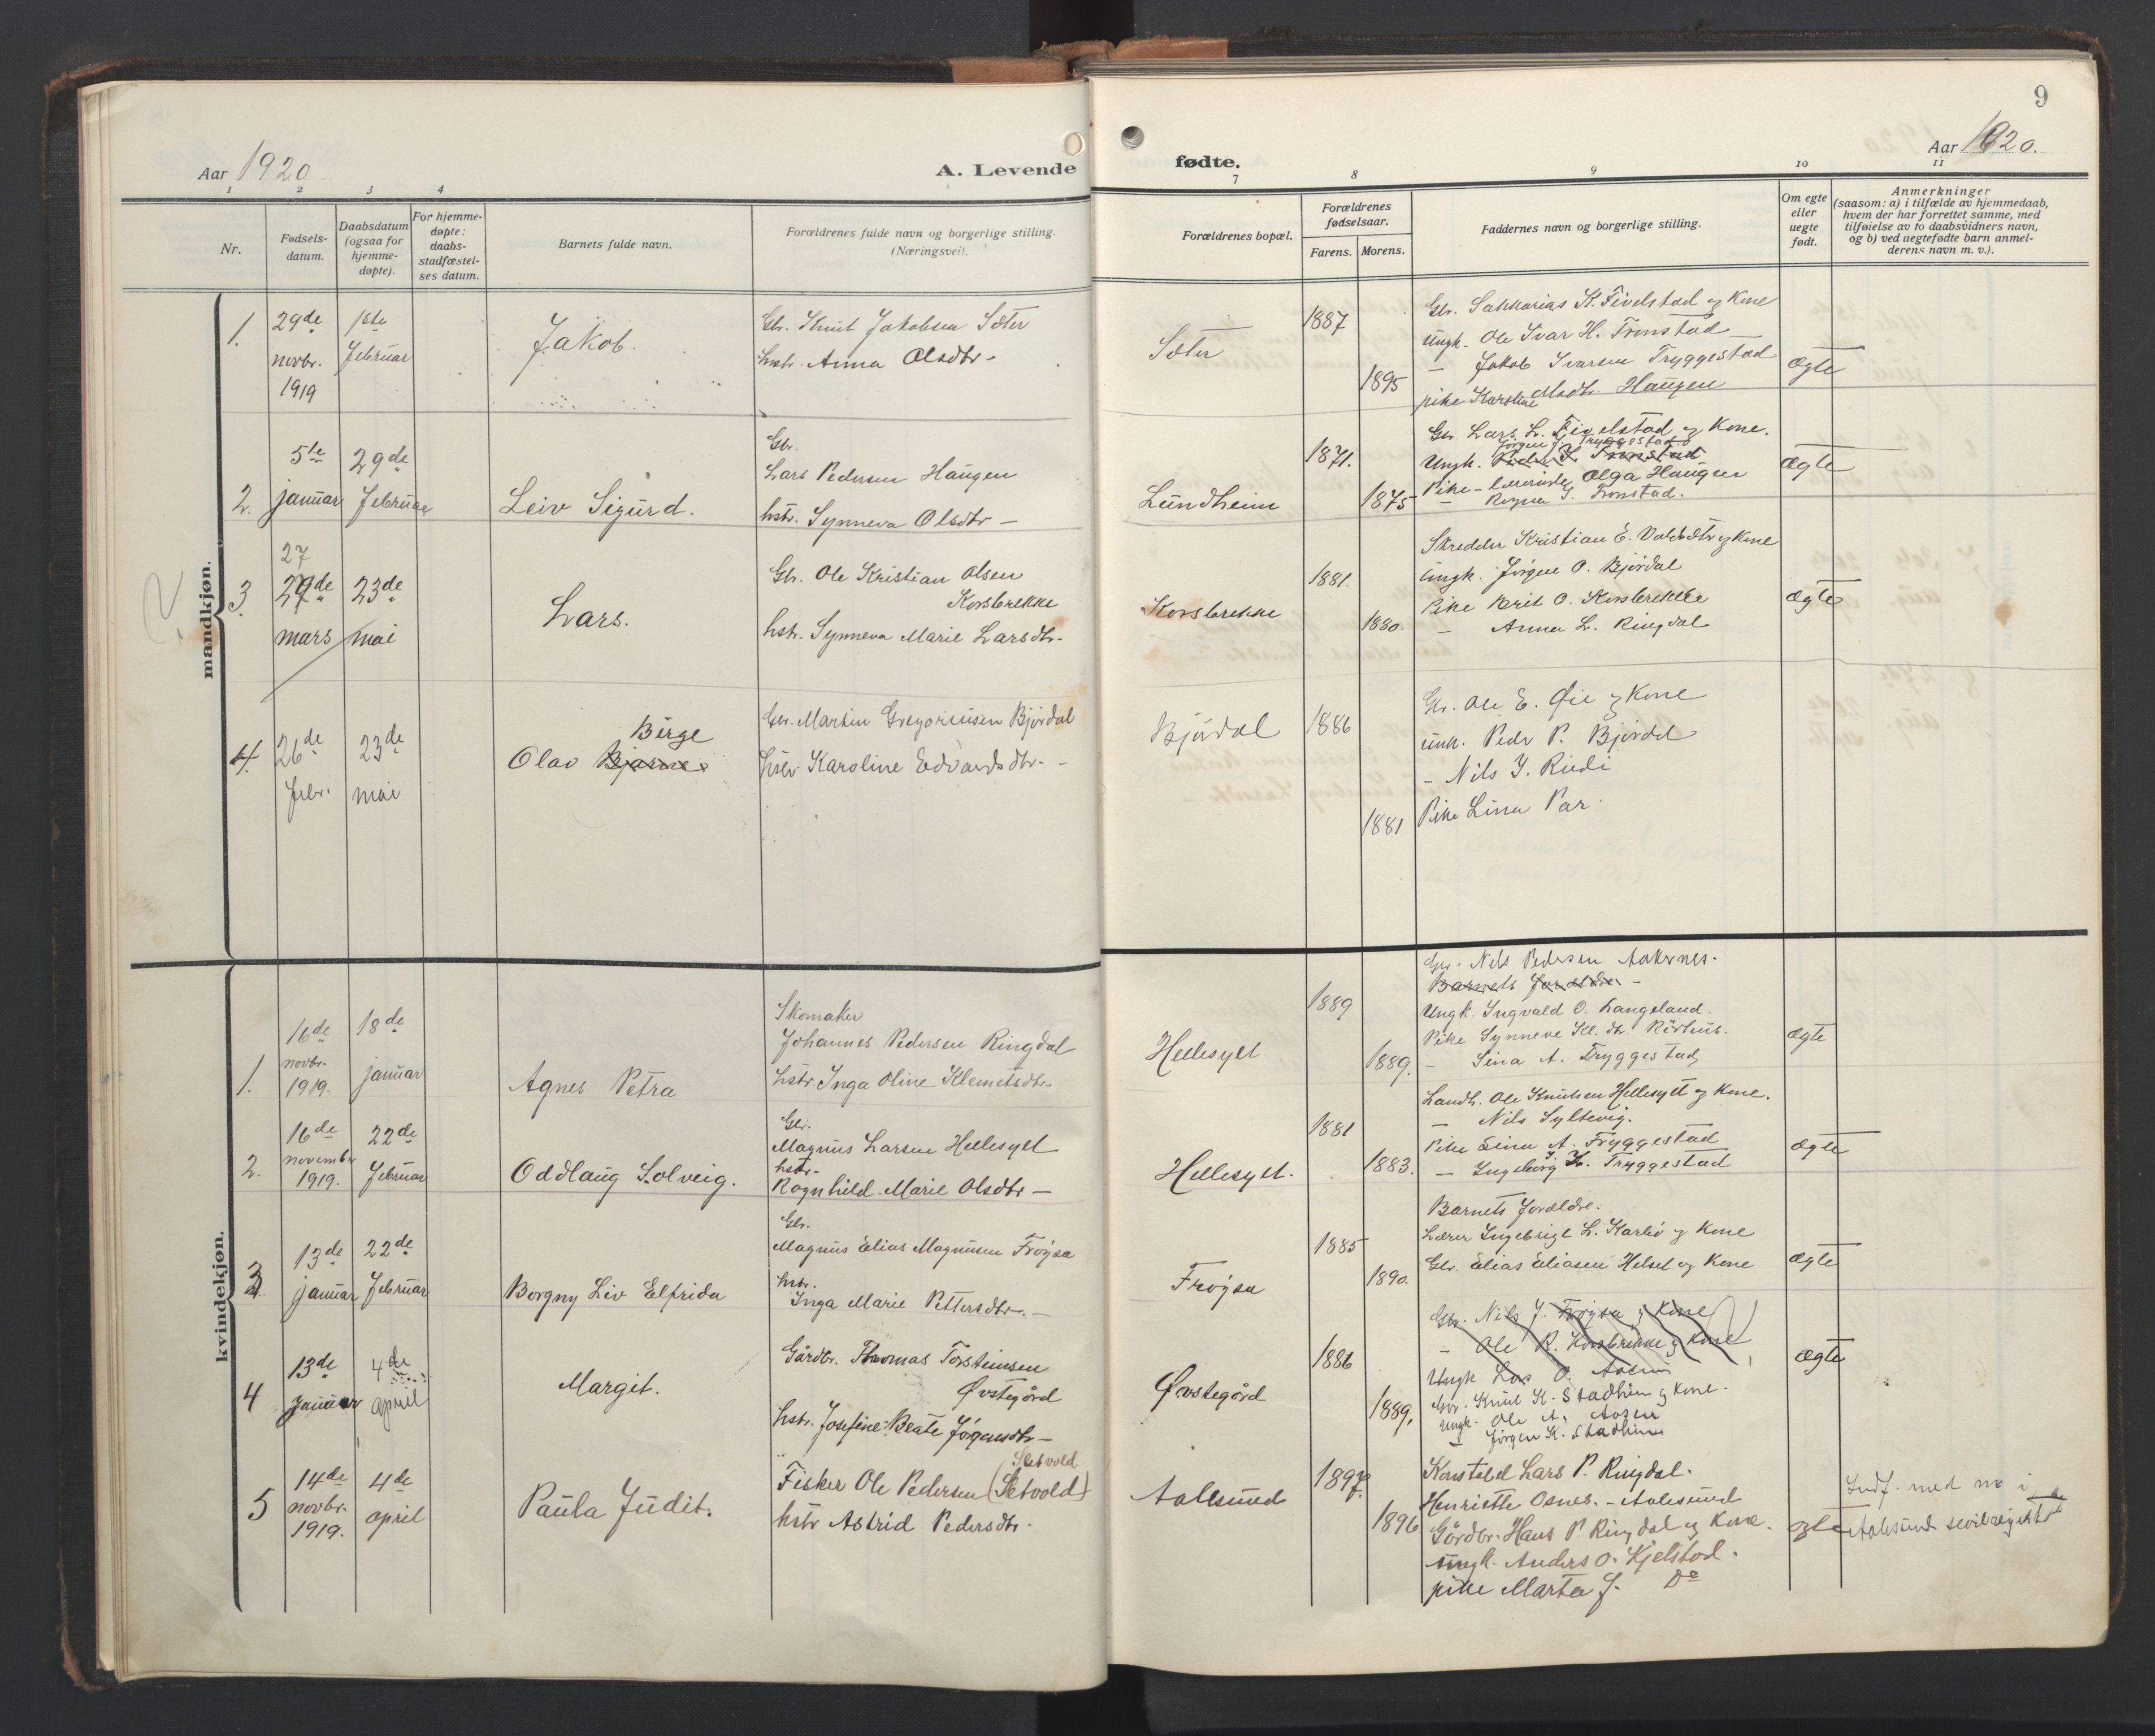 9
Aar 1920
A. Levende
fødte.
Aar 1920.
1 2 3 4
7 8 9 10 11
Nr.
Fødsels-
datum.
Daabsdatum
(ogsaa for
hjemme-
døpte).
For hjemme-
døpte:
daabs-
stadfæstel-
ses datum.
Barnets fulde navn.
Forældrenes fulde navn og borgerlige stilling.
(Næringsvei).
Forældrenes bopæl.
Forældrenes
fødselsaar.
Farens. Morens.
Faddernes navn og borgerlige stilling.
Om egte
eller
uegte
født.
Anmerkninger
(saasom: a) i tilfælde av hjemmedaab,
hvem der har forrettet samme, med
tilføielse av to daabsvidners navn,
og b) ved uegtefødte barn anmel-
derens navn m. v.).
mandkjøn.
1.
29de
novbr.
1919
1ste
Februar
Jakob.
Gbr. Knut Jakobsen Sæter
hstr. Anna Olsdtr. -
Sæter
1887
1895
Gbr. Sakkarias K. Fivelstad og Kone
Ungk. Ole Ivar H. Tronstad
- Jakob Ivarsen Tryggestad
pike Karoline Madtr. Haugen
Ægte
2.
5te
januar
29de
Februar
Leiv Sigurd.
Gbr.
Lars Pedersen Haugen
hstr. Synneva Olsdtr -
Lundheim
1871.
1875
Gbr. Lars L. Fivelstad og Kone.
Jörgen J. Tryggestad
Ungk. Peder K. Tronstad
Pike - lærerinde Olga Haugen
- Ragna G. Tronstad.
Ægte
3.
27
29de
mars
23de
mai
Lars.
Gbr. Ole Kristian Olsen
Korsbrekke
hstr. Synneva Marie Larsdtr.
Korsbrekke
1881.
1880.
Skredder Kristian E. Voldsæter og Kone
Ungk. Jörgen O. Björdal
Pike Berit O. Korsbrekke
- Anna L. Ringdal
Ægte
4.
26de
Febr.
23de
mai
Birge
Olav Bjarne
Gbr. Martin Gregoriusen Björdal
hstr. Karoline Edvardsdtr. -
Björdal
1886
1881
Gbr. Ole E. Øie og Kone
Unk. Peder P. Björdal
- Nils J. Rudi
Pike Lina Par.
kvindekjøn.
1.
16de
novbr.
1919.
18de
januar
Agnes Petra
Skomaker
Johannes Pedersen Ringdal
hstr. Inga Oline Klemetsdtr.
Hellesylt
1889
1889.
Gbr. Nils Pedersen Aakernes.
Barnets Forældre -
Ungk. Ingvald O. Langeland.
Pike Synneve Kl. dtr. Rörhus.
- Lina A. Tryggestad
Ægte
2.
16de
november
1919.
22de
Februar
Oddlaug Solveig.
Gbr.
Magnus Larsen Hellesylt
hstr.
Ragnhild Marie Olsdtr -
Hellesylt.
1881
1883.
Landh. Ole Knutsen Hellesylt og Kone.
- Nils Syltevig.
Pike Lina A. Tryggestad
- Ingeborg K. Tryggestad
Ægte
3
13de
januar
22de
Februar
Borgny Liv Elfrida
Gbr.
Magnus Elias Magnusen Fröysa
hstr.
Inga Marie Pettersdtr. -
Fröysa
1885
1890.
Barnets Forældre.
Lærer Ingebrigt L. Karbö og Kone
Gbr. Elias Eliasen Helset og Kone
Ægte
4
13de
Januar
4de
april
Margit.
Gårdbr. Thomas Torsteinsen
Øvstegård
hstr. Josefine Beate Jörgensdtr -
Øvstegård
1886
1889.
Gbr. Nils J. Fröysa og Kone
- Ole R. Korsbrekke og Kone
Ungk. Lars O. Aasen
Gbr. Knut K. Stadheim og Kone.
Ungk. Ole A. Aasen
- Jörgen K. Stadheim
Ægte
5
14de
novbr.
1919.
4de
april
Paula Judit.
Sletvold
Fisker Ole Pedersen (Sletvold)
hstr Astrid Pedersdtr.
Aalesund
1897
1896
Konstabel Lars P. Ringdal.
Henriette Osnes. - Aalesund
Gårdbr. Hans P. Ringdal og Kone.
Ungk. Anders O. Kjelstad.
pike Marta J. Do
Ægte
Indf. med no i
Aalesund sevilregister